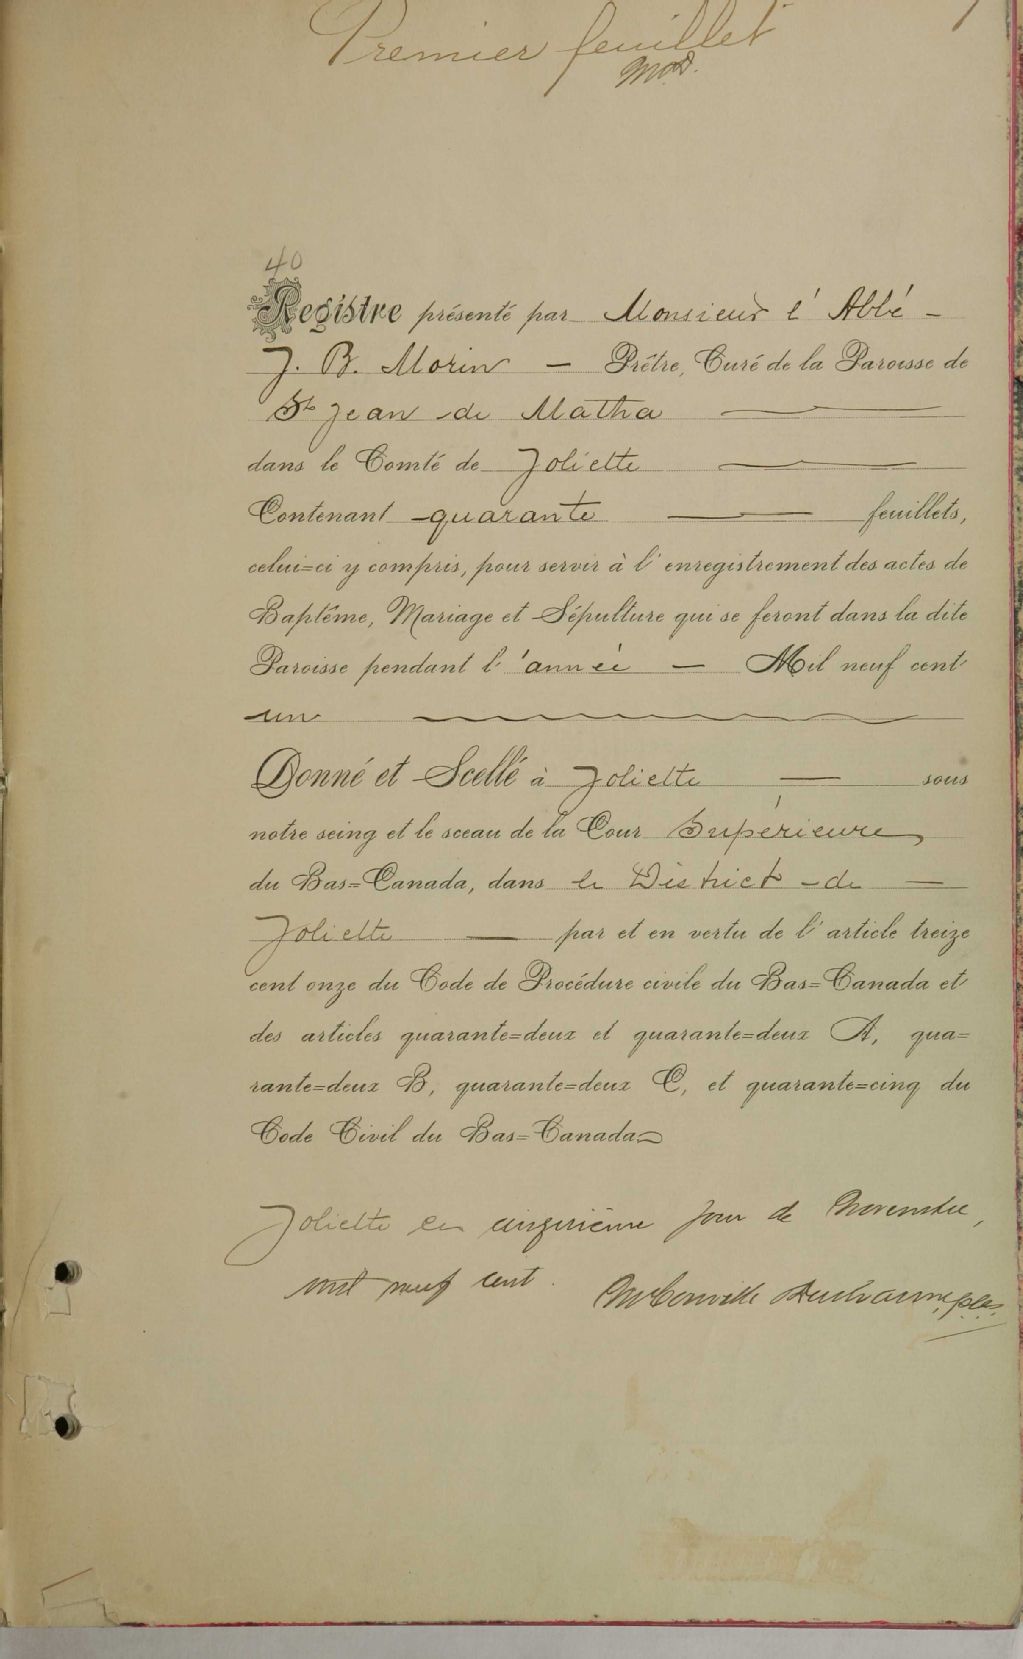 Premier feuillet
40
Registre présenté par Monsieur l'Abbé -
J. B. Morin — Prêtre, Curé de la Paroisse de
St Jean de Matha
dans le Comté de Joliette
Contenant quarante feuillets,
celui=ci y compris, pour servir à l'enregistrement des actes de
Baptême, Mariage et Sépulture qui se feront dans la dite
Paroisse pendant l'année — Mil neuf cent
un
Donné et Scellé à Joliette — sous
notre seing et le sceau de la Cour Supérieure
du Bas=Canada, dans le District de —
Joliette — par et en vertu de l'article treize
cent onze du Code de Procédure civile du Bas=Canada et
des articles quarante=deux et quarante=deux A, qua=
rante=deux B, quarante=deux C, et quarante=cinq du
Code Civil du Bas=Canada
Joliette ce cinquième jour de Novembre,
mil neuf cent.
Ducharme